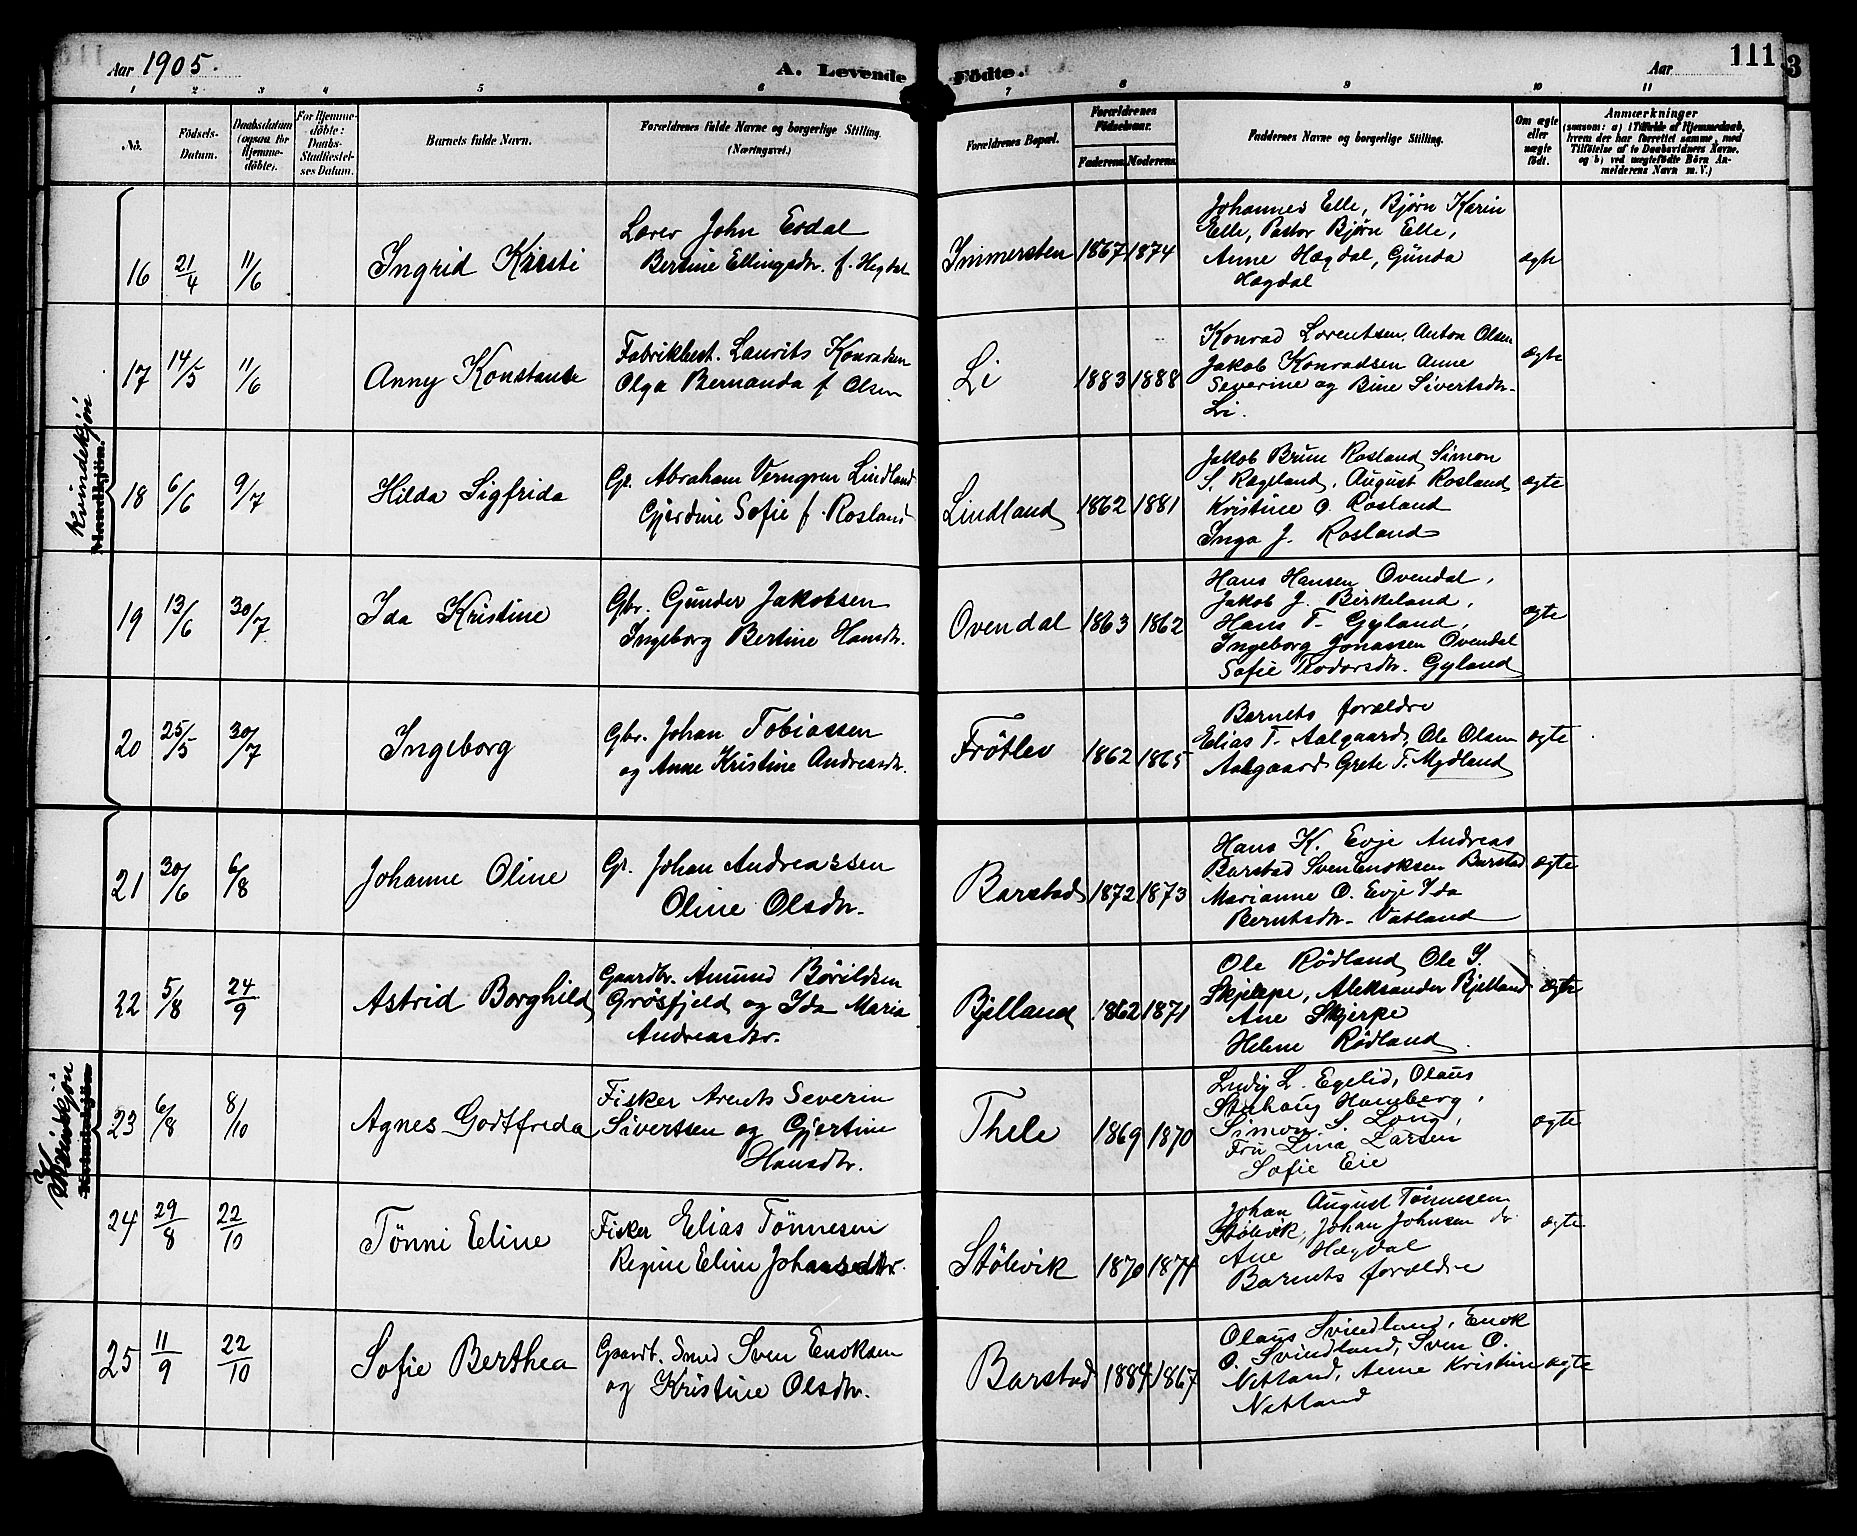 Aar 1905. A. Levende Födte. Aar 111
3
1 2 3 4 5 6 7 8 9 10 11
No.
Födsels-
Datum.
Daabsdatum
(ogsaa for
Hjemme-
döbte).
For Hjemme-
döbte:
Daabs-
Stadfæstel-
ses Datum.
Barnets fulde Navn.
Forældrenes fulde Navne og borgerlige Stilling.
(Næringsvei.)
Forældrenes Bopæl.
Forældrenes
Födselsaar.
Faderens. Moderens.
Faddernes Navne og borgerlige Stilling.
Om ægte
eller
uægte
födt.
Anmærkninger
(saasom: a) i Tilfælde af Hjemmedaab,
hvem der har forrettet samme, med
Tilföielse af to Daabsvidners Navne,
og b) ved uægtefödte Börn An-
melderens Navn m. V.)
Kvindekjön
Mandkjön.
16 21/4 11/6 Ingrid Kirsti
Lærer John Esdal
Bertine Ellingsdtr. f. Hegdal
Immersten 1867 1874
Johannes Elle, Bjørn Karin
Elle, Pastor Bjørn Elle,
Anne Hægdal, Gunda
Hægdal
ægte
17 14/5 11/6 Anny Konstanse
Fabrikbest. Laurits Konradsen
Olga Bernanda f Olsen
Li 1883 1888
Konrad Lorentsen, Anton Olsen
Jakob Konradsen Anne
Severine og Bine Sivertsdtr.
Li.
ægte
18 6/6 9/7 Hilda Sigfrida
Gr. Abraham Verngren Lindland
Gjerdine Sofie f. Rosland
Lindland 1862 1881
Jakob Brun Rosland Simon
S. Rægeland, August Rosland
Kristine O. Rosland
Inga J. Rosland
ægte
19 13/6 30/7 Ida Kristine
Gbr. Gunder Jakobsen
Ingeborg Bertine Hansdtr.
Ovendal 1863 1862
Hans Hansen Ovendal,
Jakob J. Birkeland,
Hans T. Gyland,
Ingeborg Jonassen Ovendal
Sofie Teodorsdtr. Gyland
ægte
20 25/5 30/7 Ingeborg
Gbr. Johan Tobiassen
og Anne Kristine Andreasdtr.
Frötlev 1862 1865
Barnets forældre
Elias T. Aalgaard, Ole Olsen
Aalgaard Grete T. Mydland
ægte
21 30/6 6/8 Johanne Oline
Gr. Johan Andreassen
Oline Olsdtr.
Barstad 1872 1873
Hans K. Evje Andreas
Barstad Sven Enoksen Barstad
Marianne O. Evje Ida
Berntsdtr. Vatland
ægte
22 5/8 24/9 Astrid Borghild
Gaardbr. Amund Börildsen
Grösfjeld og Ida Maria
Andreasdtr.
Bjelland 1862 1871
Ole Rödland Ole S.
Skjerpe, Aleksander Bjelland
Ane Skjerpe
Helene Rödland.
ægte
Kvindekjön
23 6/8 8/10 Agnes Godtfreda
Fisker Arents Severin
Sivertsen og Gjertine
Hansdtr.
Thele 1869 1870
Ludig L. Egelid, Olaus
Stuhaug Hamberg,
Simon S. Long,
Fru Lina Larsen
Sofie Eie
ægte
24 29/8 22/10 Tönni Eline
Fisker Elias Tönnesen
Regine Eline Johansdtr.
Stölevik 1870 1874
Johan August Tönnesen
Stölevik, Johan Johnsen do.
Ane Hægdal
Barnets forældre
ægte
25 11/9 22/10 Sofie Berthea
Gaardb. Smed Sven Enoksen
og Kristine Olsdtr.
Barstad 1884 1867
Olaus Svindland, Enok
O. Svindland, Sven O.
Netland, Anne Kristine
Netland
ægte